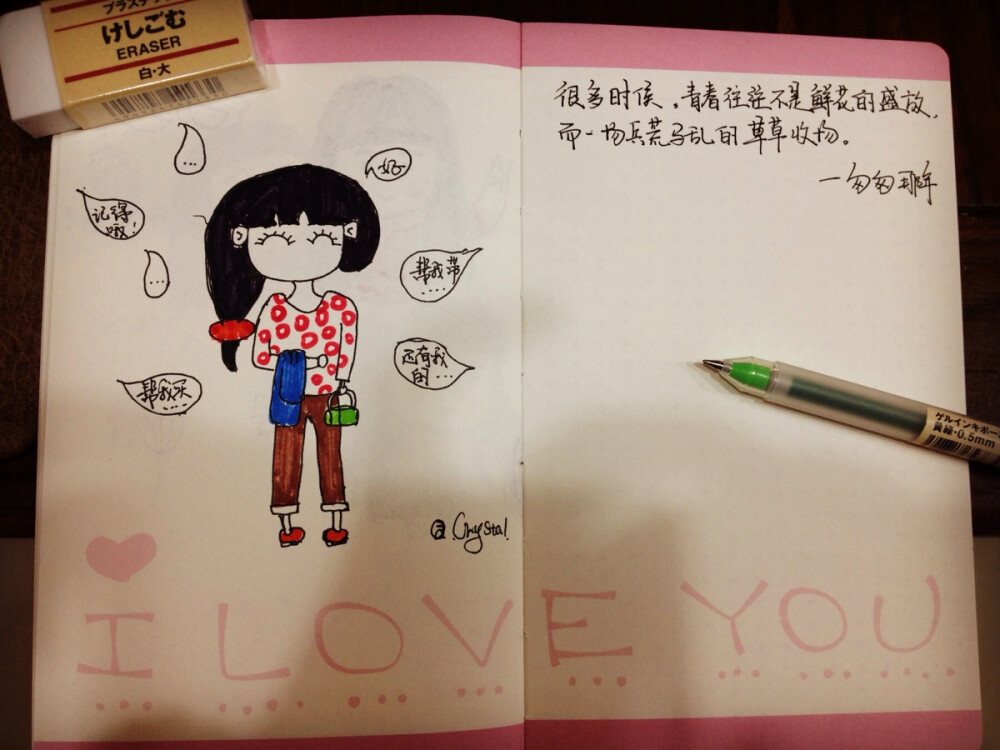 プラスチッ
けしごむ
ERASER
白・大
...
好
记得
哦!
...
帮我带
....
还有我
的...
帮我买
....
@Crystal
很多时候,青春往往不是鲜花的盛放,
而一场兵荒马乱的草草收场。
—匆匆那年
ゲルインキボー
黄緑・0.5mm
I LOVE YOU